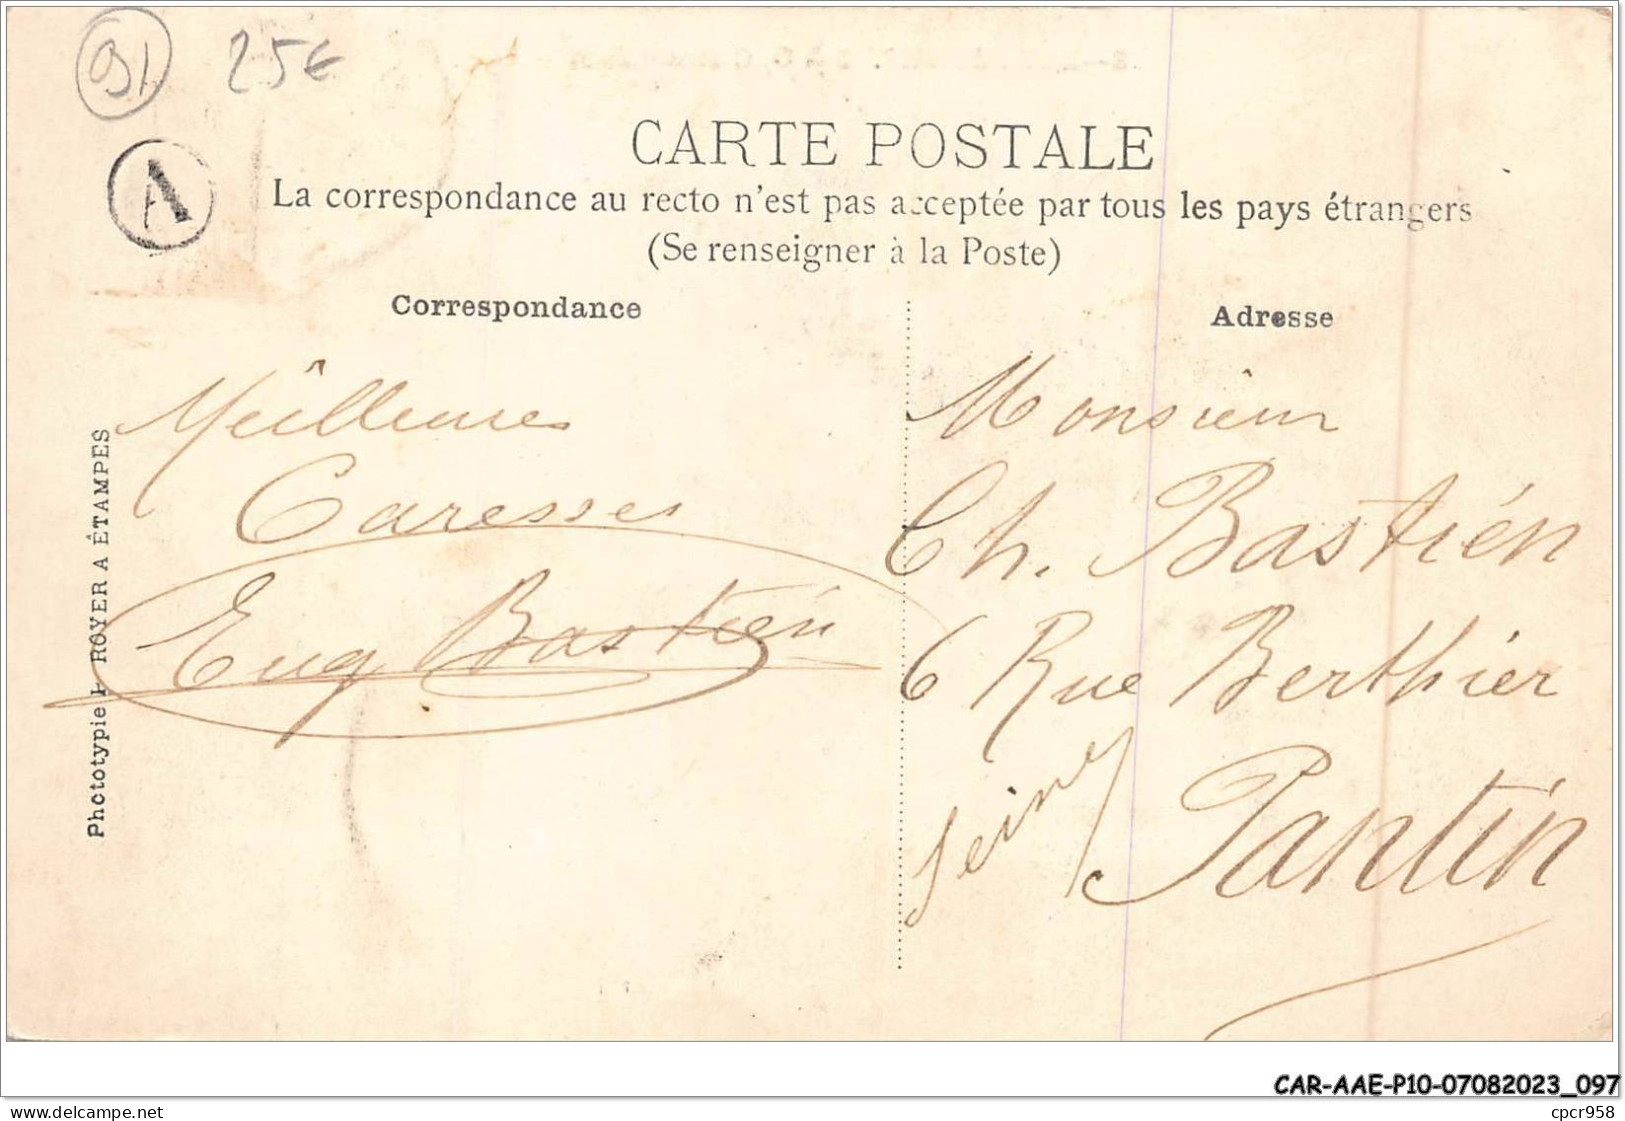 91
25€
A
CARTE POSTALE
La correspondance au recto n'est pas acceptée par tous les pays étrangers
(Se renseigner à la Poste)
Correspondance
Adresse
Meilleures
Caresses
Eug Bastien
Monsieur
Ch. Bastien
6 Rue Berthier
Pantin
Seine
Phototypie L. ROYER A ÉTAMPES
CAR-AAE-P10-07082023_097
delcampe.net
cpcr958